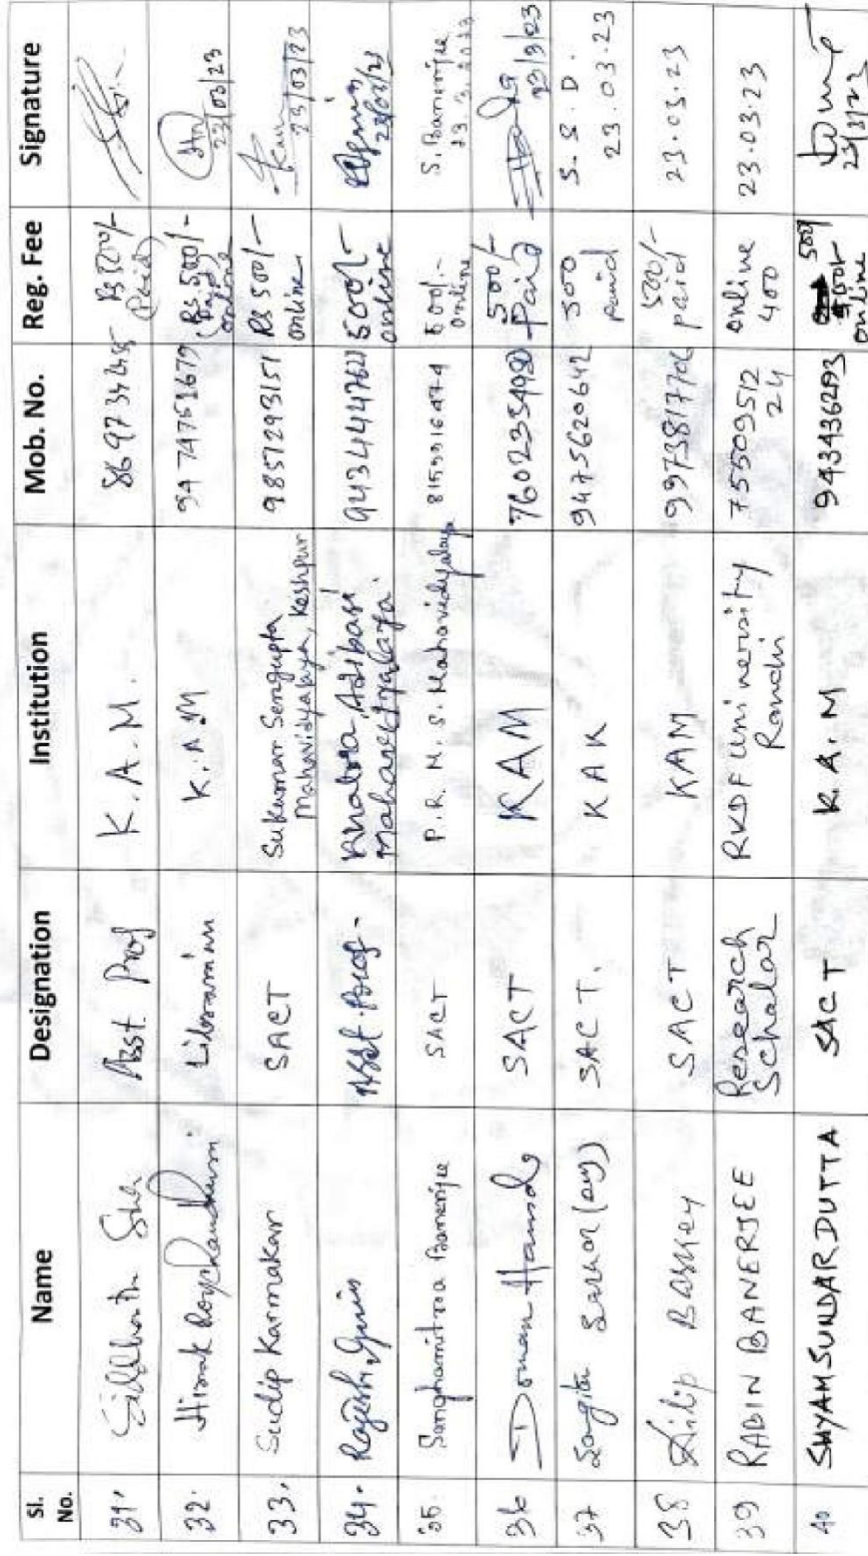 Sl. No. Name Designation Institution Mob. No. Reg. Fee Signature
31. Siddhartha Sha Asst. Prof K. A. M. Rs 500/- (Paid)
32. Hirak Roychaudhuri Librarian K. A. M 9474751679 Rs 500/- online 23/03/23
33. Sudip Karmakar SACT Sukumar Sengupta Mahavidyalaya, Keshpur 9857293151 Rs 500/- online 23/03/23
34. Rajesh Guin Asst. Prof. Khatra Adibasi Mahavidyalaya. 500/- online 23/03/23
35. Sanghamitra Banerjee SACT P. R. M. S. Mahavidyalaya 500/- online S. Banerjee 23.3.2023
36 Doman Hansda SACT KAM 7602354980 500/- Paid 23/3/23
37 Sangita Sarkar SACT. KAK 9475620642 500 paid S. S. D. 23.03.23
38 Dilip Baskey SACT KAM 500/- paid 23.03.23
39 RABIN BANERJEE Research Scholar RKDF University Ranchi Online 400 23.03.23
40 SHYAM SUNDAR DUTTA SACT K.A.M 943436293 500/- online